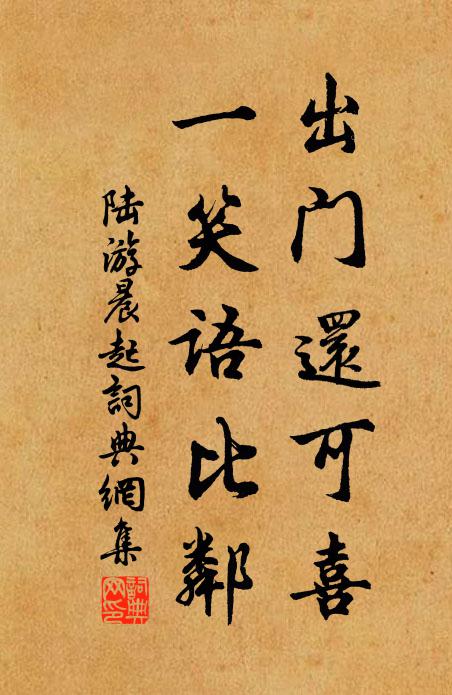 出門還可喜
一笑語比鄰
陆游晨起詞典網集
詞典
网印